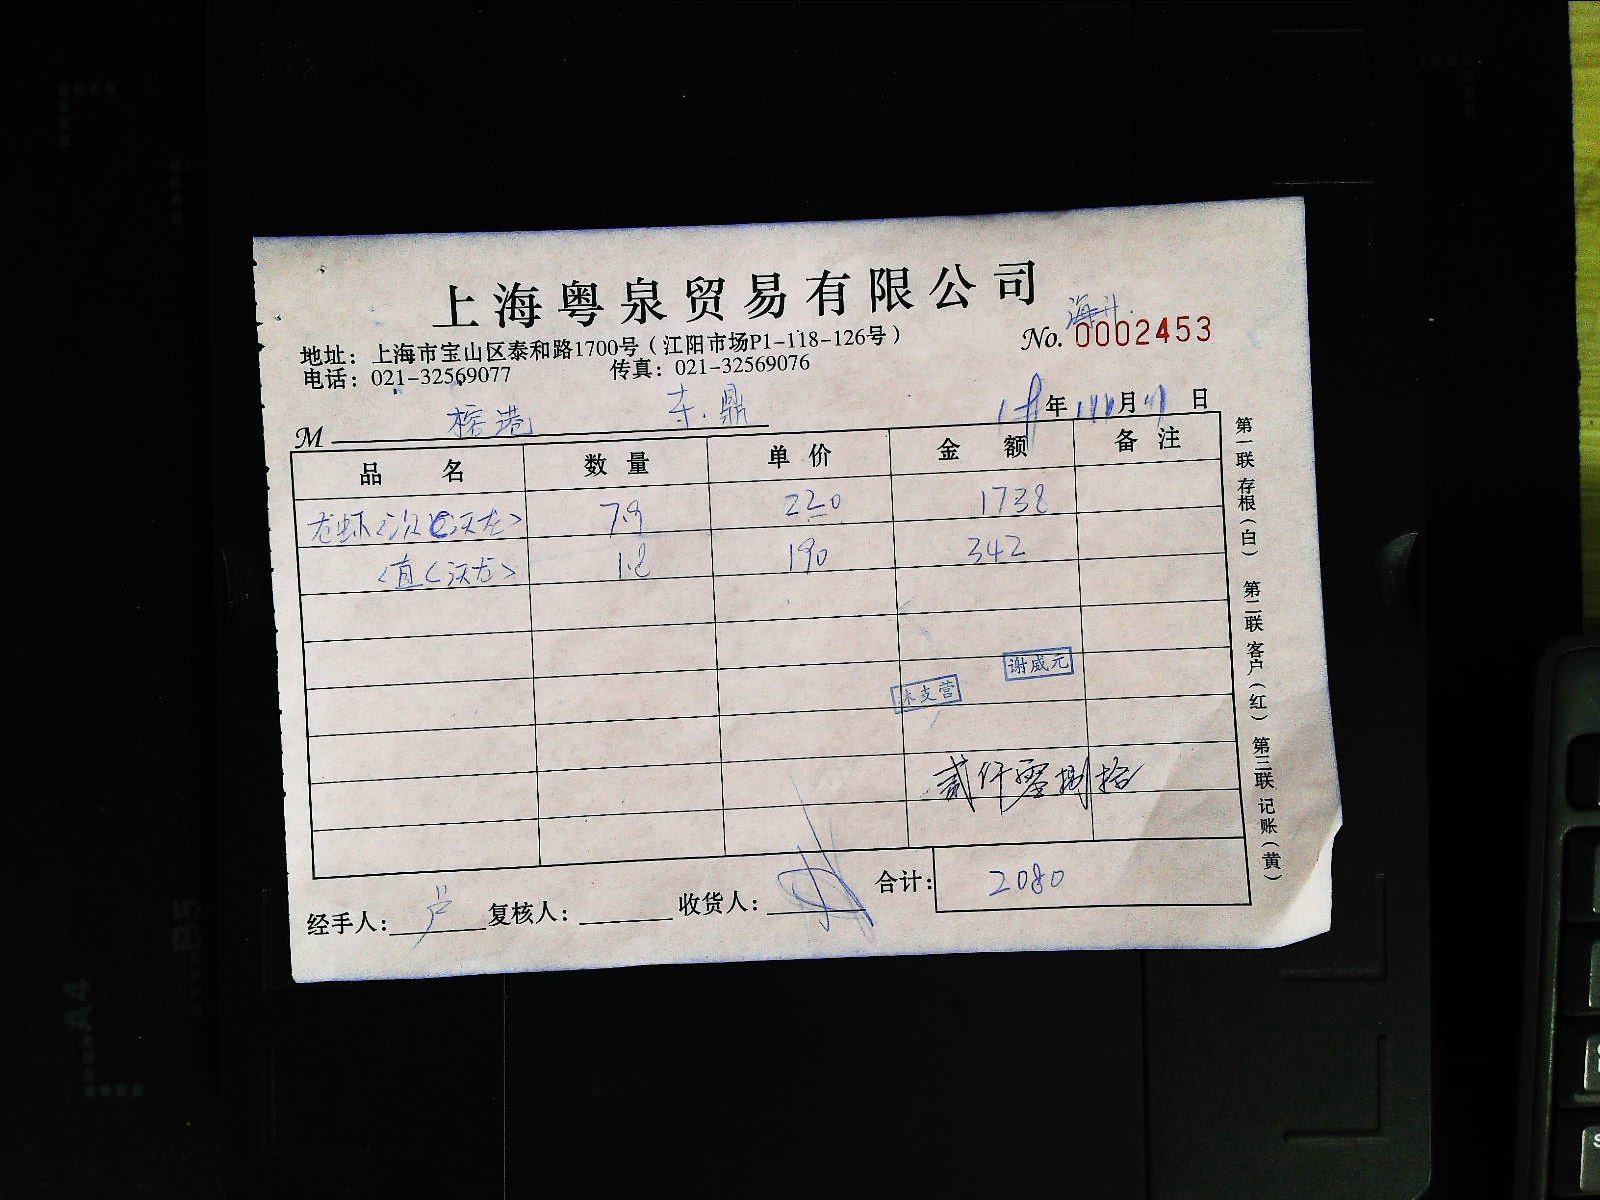 上海粤泉贸易有限公司
海升
地址：上海市宝山区泰和路1700号（江阳市场P1-118-126号）
No. 0002453
电话：021-32569077 传真：021-32569076
M 榕港
年 月 日
品 名 数 量 单 价 金 额 备 注
龙虾 7.9 220 1738
1.8 190 342
谢威元
支营
贰仟零捌拾
合计： 2080
经手人： 卢 复核人： 收货人：
第一联 存根（白） 第二联 客户（红） 第三联 记账（黄）
B5
A4